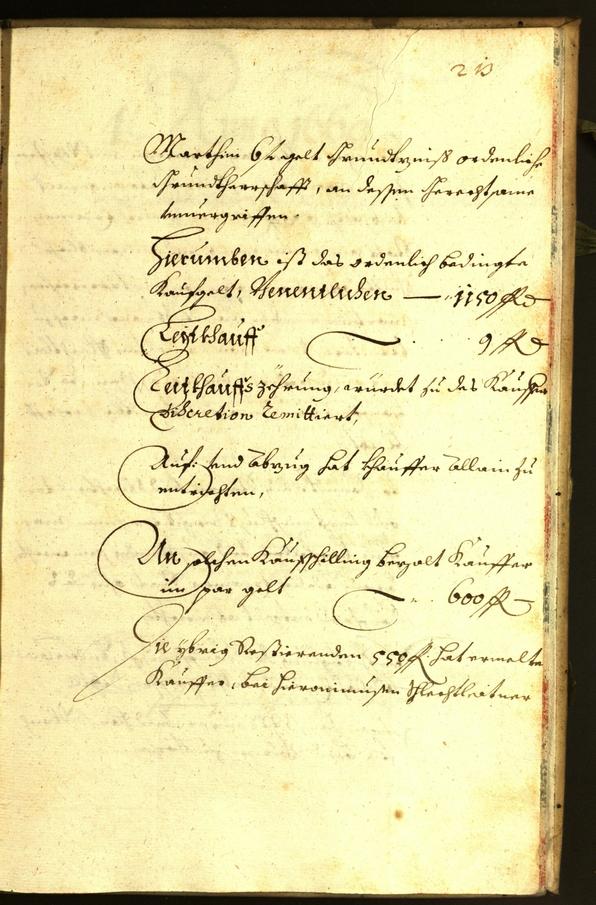 213
Marthini 6 f gelt Grundtzinß ordenliche
Grundtherrschafft, an dessen Gerechtsame
unuergriffen.
Hierumben ist das ordenlich bedingte
Kaufgelt, Benentlichen — 1150 f
Leytkhauff — 9 f
Leitkhauffs Zöhrung, würdet zu des Kauffers
discretion Remittiert,
Auf: und Abzug hat Khauffer Allain zu
entrichten,
An solchen Kaufschilling bezalt Kauffer
im par gelt — 600 f
Die ybrig Restierenden 550 f hat ermelte
Kauffer, bei Hieronimusen Schlechtleitner